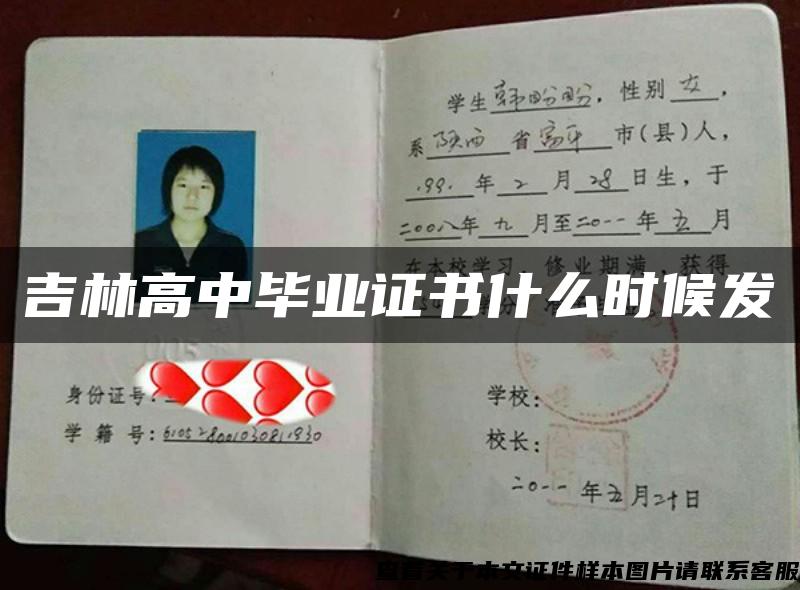 学生韩盼盼，性别女，
系陕西省富平市(县)人，
1991年2月28日生，于
二00八年九月至二0一一年五月
在本校学习，修业期满，获得
吉林高中毕业证书什么时候发
身份证号：
学籍号：610528001030811930
学校：
校长：
二0一一年五月二十日
查看关于本文证件样本图片请联系客服